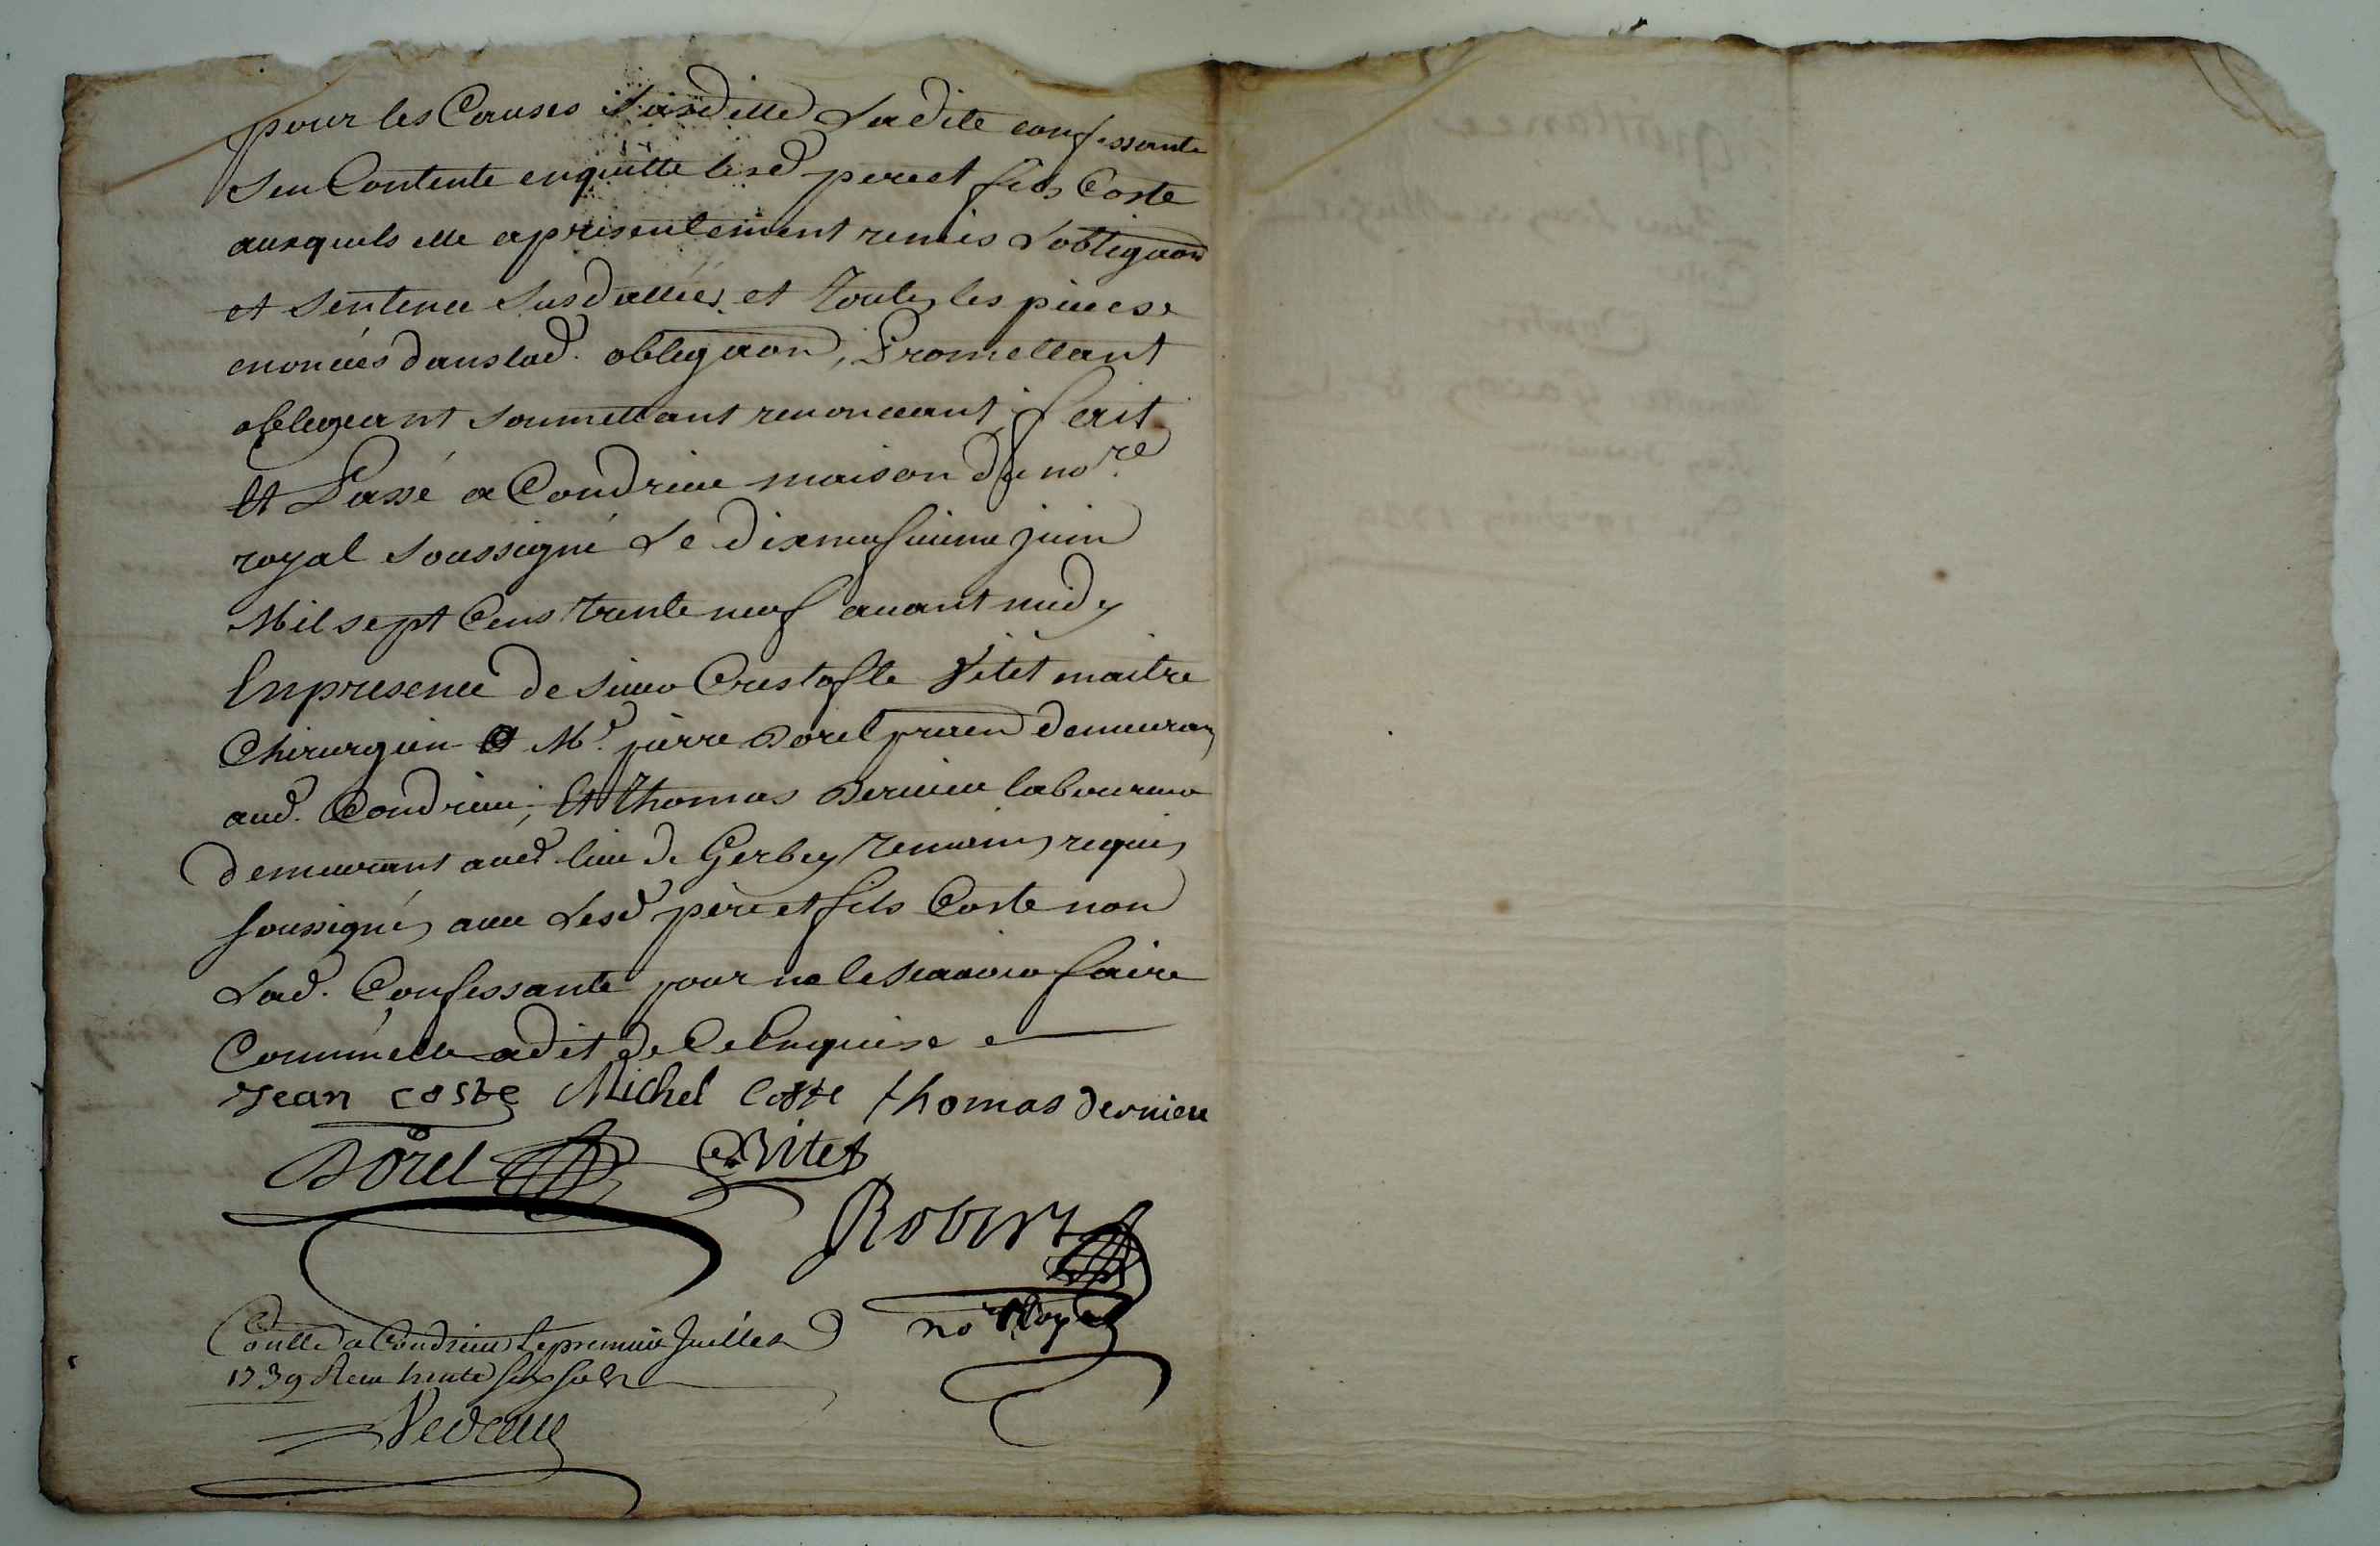 pour les Causes susditte Ladite confessante
s'en Contente enquitte lesd pere et fils Coste
auxquels elle a presentement remis L'obligaon
et sentence susdattées et toutes les pieces
enoncées dans lad. obligaon, Promettant
obligeant soumettant renonceant, fait
Et Passé a Condrieu maison du no.re
royal soussigné Le dixneufvieme juin
Mil sept Cens trente neuf avant midy
En presence de sieur Cristofle Vitet maitre
Chirurgien et Mr. pierre Dorel praen demeurans
aud. Condrieu, Et thomas Dernieu laboureur
demeurant aud lieu de Gerbey temoins requis
soussignés avec Lesd pere et fils Coste non
Lad. Confessante pour ne le scavoir faire
Comm'elle a dit de Ce Enquise
Jean coste Michel Coste thomas dernieu
Dorel Vitet
Robert
no.re Royal
Conllé a Condrieu le premier Juillet
1739 Receu trente six sols